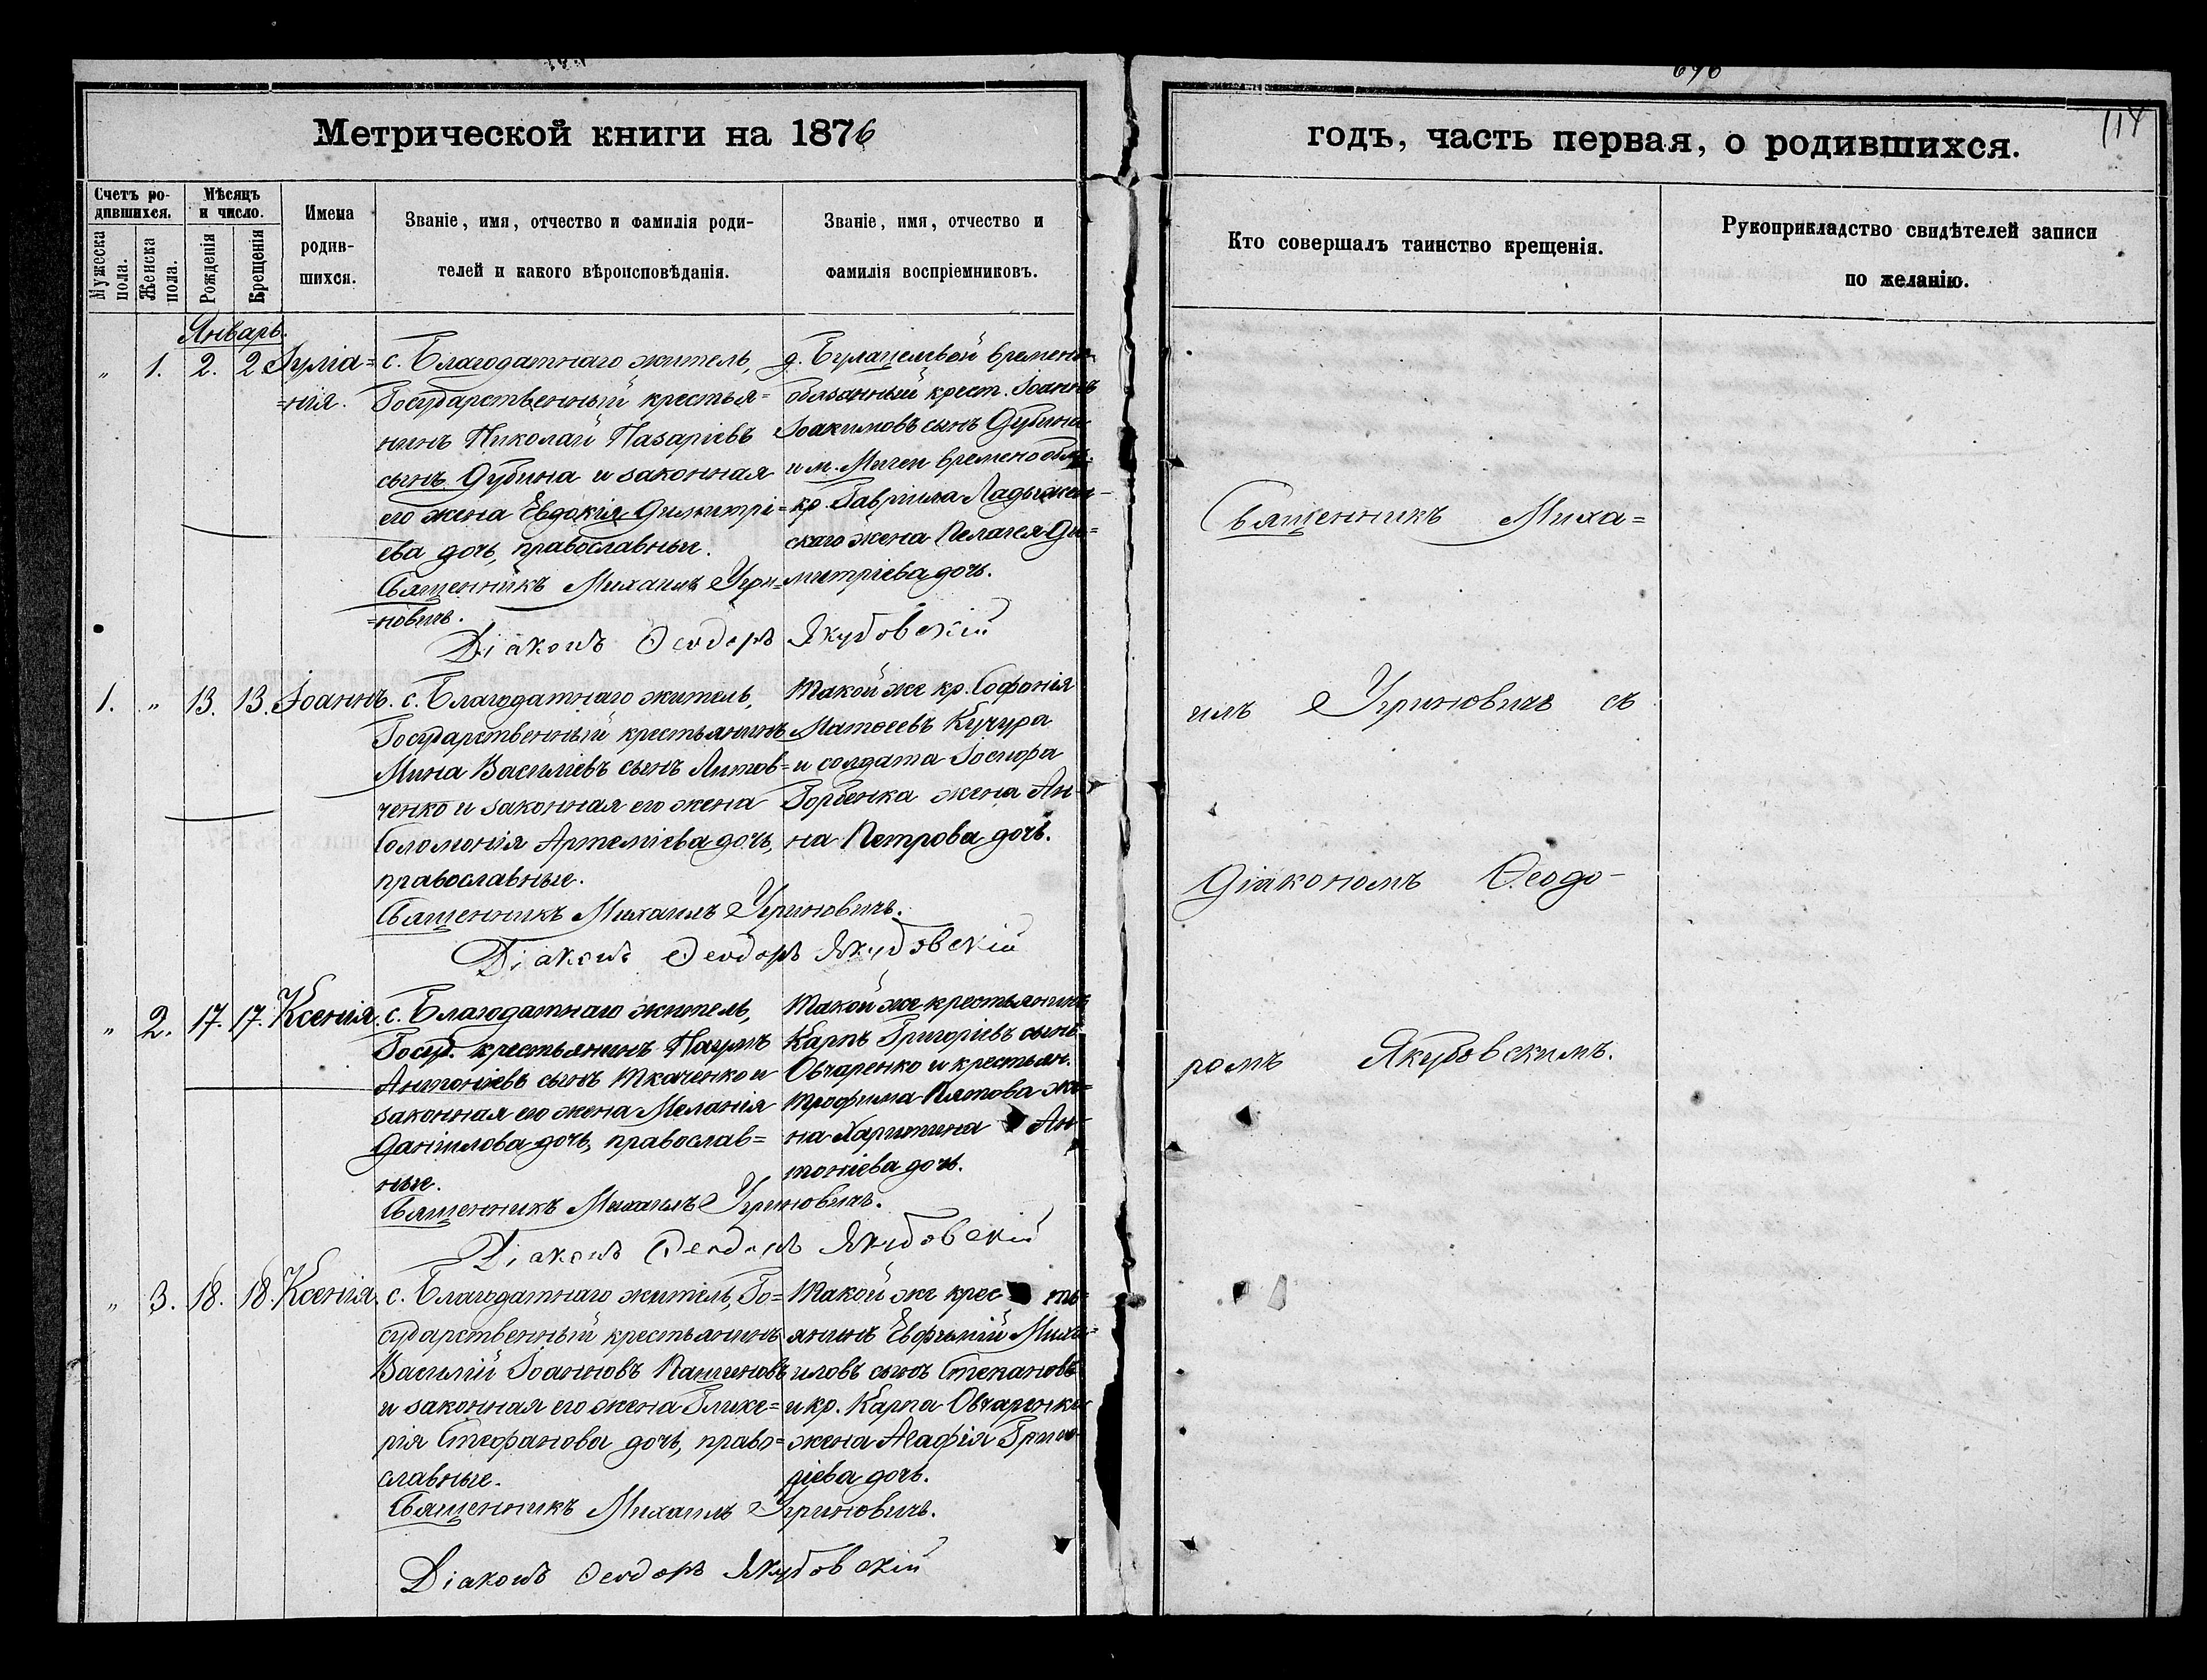 Метрической книги на 1876
годъ, часть первая, о родившихся.
114
Счетъ ро-
дившихся.
Мужеска пола.
Женска пола.
Мѣсяцъ
и число.
Рожденія
Крещенія
Имена
родив-
шихся.
Званіе, имя, отчество и фамилія роди-
телей и какого вѣроисповѣданія.
Званіе, имя, отчество и
фамилія воспріемниковъ.
Кто совершалъ таинство крещенія.
Рукоприкладство свидѣтелей записи
по желанію.
Январь.
„ 1. 2. 2 Іуліа=
=нія.
с. Благодатнаго житель,
Государственный крестья=
нинъ Николай Назаріевъ
сынъ Дубина и законная
его жена Евдокія Димитрі=
ева дочь, православные.
Священникъ Михаилъ Угри=
=новичъ.
Діаконъ Ѳеодоръ Якубовскій
временно
обязанный крест. Іоаннъ
Іоакимовъ сынъ Дубина
и м. Мигеи временообяз.
кр. Гавріила Ладыжен-
скаго жена Пелагея Ди=
митріева дочь.
1. „ 13. 13. Іоаннъ.
с. Благодатнаго житель,
Государственный крестьянинъ
Мина Василіевъ сынъ Литов=
ченко и законная его жена
Соломонія Артеміева дочь,
православные.
Священникъ Михаилъ Угриновичъ.
Діаконъ Ѳеодоръ Якубовскій
Такой же кр. Софонія
Матѳеевъ Кучура
и солдата Іосифа
Горбенка жена Ан-
на Петрова дочь.
„ 2. 17. 17. Ксенія.
с. Благодатнаго житель,
Госуд. крестьянинъ Наумъ
Антоніевъ сынъ Ткаченко и
законная его жена Меланія
Даніилова дочь, православ=
ные.
Священникъ Михаилъ Угриновичъ.
Діаконъ Ѳеодоръ Якубовскій
Такой же крестьянинъ
Карпъ Григоріевъ сынъ
Овчаренко и крестьян.
Трофима Пятова же=
на Харитина Ан-
тоніева дочь.
„ 3. 18. 18. Ксенія.
с. Благодатнаго житель, Го=
сударственный крестьянинъ
Василій Іоанновъ
и законная его жена Глике=
рія Стефанова дочь, право=
славные.
Священникъ Михаилъ Угриновичъ.
Діаконъ Ѳеодоръ Якубовскій
Такой же крес ть=
янинъ Евфимій Миха=
иловъ сынъ Степановъ
и кр. Карпа Овчаренка
жена Агафія Григо-
ріева дочь.
Священникъ Миха=
илъ Угриновичъ съ
Діакономъ Ѳеодо-
ромъ Якубовскимъ.